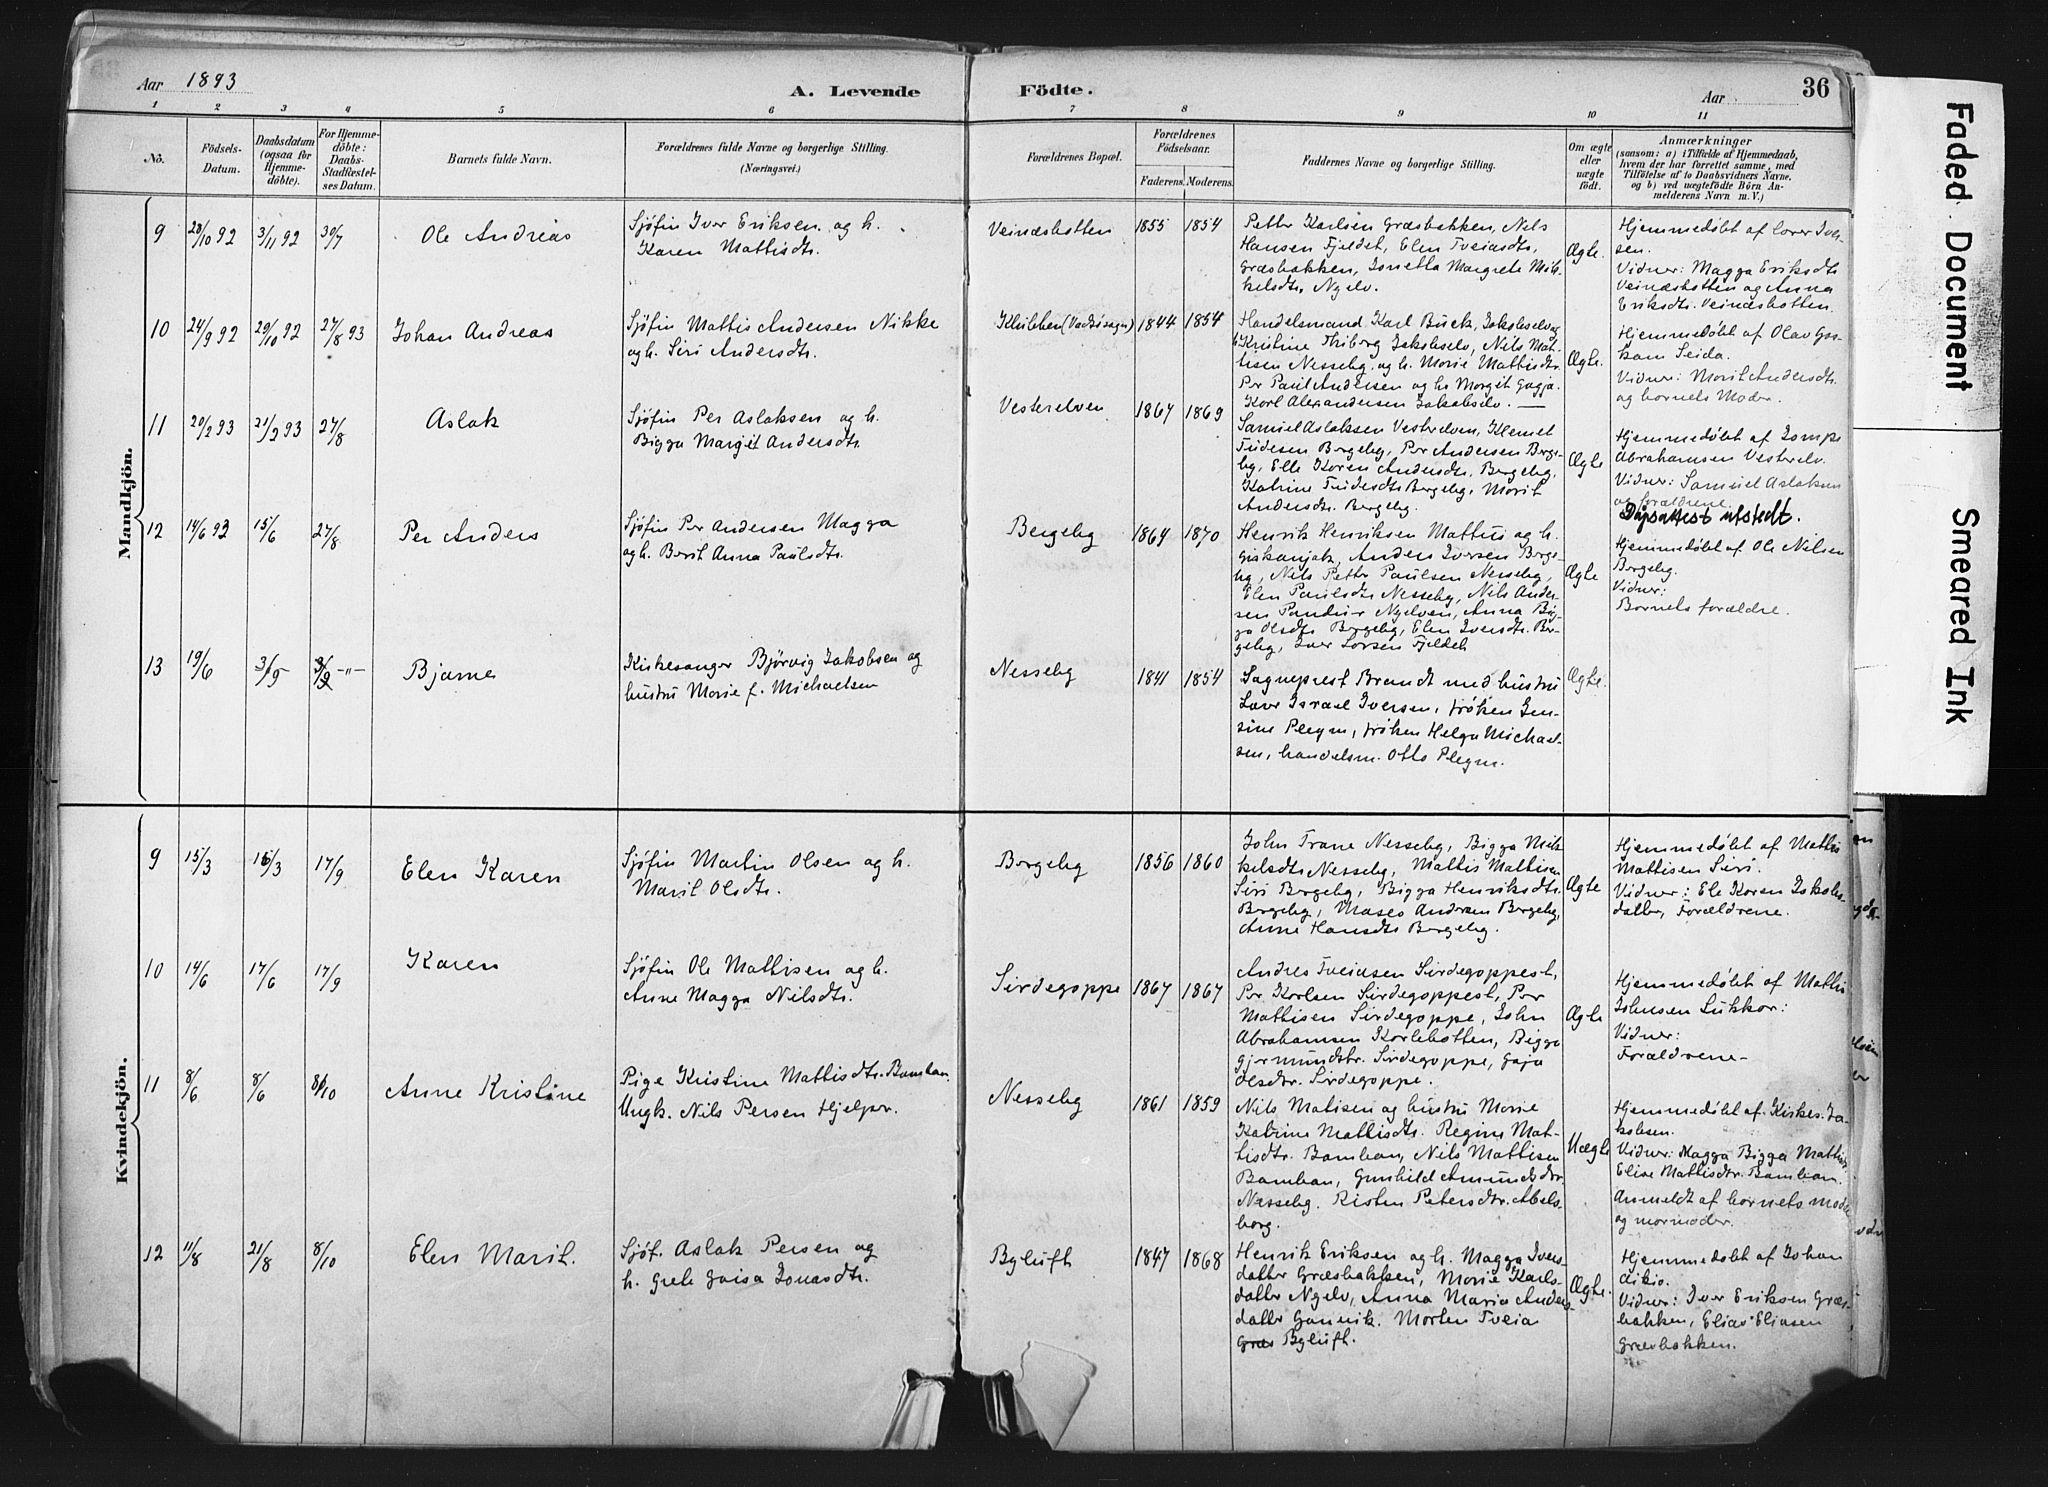 Aar 1893
A. Levende
Födte.
Aar
36
1 2 3 4 5 6 7 8 9 10 11
No.
Födsels-
Datum.
Daabsdatum
(ogsaa for
Hjemme-
döbte).
For Hjemme-
döbte:
Daabs-
Stadfæstel-
ses Datum.
Barnets fulde Navn.
Forældrenes fulde Navne og borgerlige Stilling.
(Næringsvei.)
Forældrenes Bopæl.
Forældrenes
Födselsaar.
Faderens. Moderens.
Faddernes Navne og borgerlige Stilling.
Om ægte
eller
uægte
födt.
Anmærkninger
(saasom: a) i Tilfælde af Hjemmedaab,
hvem der har forrettet samme, med
Tilföielse af to Daabsvidners Navne,
og b) ved uægtefödte Börn An-
melderens Navn m. V.)
Mandkjön.
9
28/10 92
3/11 92
30/7
Ole Andreas
Sjöfin Iver Eriksen og h.
Karen Mattisdtr.
Veinæsbotten
1855
1854
Petter Karlsen Græsbakken, Nils
Hansen Fjeldst, Elen Tveiasdtr,
Græsbakken, Jonetta Margrete Mik-
kelsdtr, Nyelv.
Ægte.
Hjemmedöbt af Lærer Iver-
sen.
Vidner: Magga Eriksdtr
Veinæsbotten og Anna
Eriksdtr. Veinæsbotten.
10
24/9 92
29/10 92
27/8 93
Johan Andreas
Sjöfin Mattis Andersen Nikke
og h. Siri Andersdtr.
(Vadsösogn)
1844
1854
Handelsmand Karl Buck, Jakobselv og
h. Kristine Friborg Jakobselv, Nils Mat-
tisen Nesseby, og h. Marie Mattisdtr.
Per Paul Andersen og h. Margit Gagja.
Karl Alexandersen Jakobselv.
Ægte.
Hjemmedöbt af Olav
Seida.
Vidner: Marit Andersdtr.
og barnets Moder.
11
20/2 93
21/2 93
27/8
Aslak
Sjöfin Per Aslaksen og h.
Bigga Margit Andersdtr.
Vesterelven
1867
1869
Samuel Aslaksen Vesterelven, Klemet
Tudesen Bergeby, Per Andersen Berge-
by, Elle Karen Andersdtr, Bergeby,
Katrine Tudesdtr Bergeby, Marit
Andersdtr. Bergeby.
Ægte
Hjemmedöbt af Jompe
Abrahamsen Vesterelv.
Vidner: Samuel Aslaksen
og forældrene
12
14/6 93
15/6
27/8
Per Anders
Sjöfin Per Andersen Magga
og h. Berit Anna Paulsdtr.
Bergeby
1864
1870
Henrik Henriksen Mattus og h.
Giskanjok, Anders Iversen Berge-
by, Nils Petter Paulsen Nesseby,
Elen Paulsdtr Nesseby, Nils Ander-
sen Nyelven, Anna Big-
ga Olsdtr Bergeby, Elen Iversdtr. Ber-
geby, Iver Larsen Fjeldet
Ægte
Dåpsattest utstedt.
Hjemmedöbt af Ole Nilsen
Bergeby.
Vidner:
Barnets forældre.
13
19/6
3/9
3/9 -"-
Bjarne
Kirkesanger Björvig Jakobsen og
hustru Marie f. Michaelsen
Nesseby
1841
1854
Sogneprest Brandt med hustru
Lærer Israel Iversen, fröken Jen-
sine Pleym, fröken Helga Michael-
sen, handelsm. Otto Pleym.
Ægte.
Kvindekjön.
9
15/3
16/3
17/9
Elen Karen
Sjöfin Martin Olsen og h.
Marit Olsdtr.
Bergeby
1856
1860
John Trane Nesseby, Bigga Mik-
kelsdtr Nesseby, Mattis Mattisen
Siri Bergeby, Bigga Henriksdtr.
Bergeby, Mases Andersen Bergeby,
Anne Hansdtr Bergeby.
Ægte
Hjemmedöbt af Mattis
Mattisen Siri.
Vidner: Ele Karen Jakobs-
datter, Forældrene.
10
14/6
17/6
17/9
Karen
Sjöfin Ole Mattisen og h.
Anne Magga Nilsdtr.
Sirdegoppe
1867
1867
Andres Tveiasen Sirdegoppest,
Per Karlsen Sirdegoppest, Per
Mattisen Sirdegoppe, John
Abrahamsen Karlebotten, Bigga
Gjermundsdtr. Sirdegoppe, Gaja
Olsdtr. Sirdegoppe.
Ægte
Hjemmedöbt af Mattis
Johnsen Lukkar:
Vidner:
Forældrene-
11
8/6
8/6
8/10
Anne Kristine
Pige Kristine Mattisdtr. Banban.
Ungk. Nils Persen Hjelper.
Nesseby
1861
1859
Nils Matisen og hustru Marie
Katrine Mattisdtr. Regine Mat-
tisdtr. Banban, Nils Mattisen
Banban, Gunhild Amundsdtr.
Nesseby. Risten Petersdtr. Abels-
borg.
Uægte
Hjemmedöbt af Kirkes. Ja-
kobsen.
Vidner: Magga Bigga Mattisdtr.
Elise Mattisdtr. Banban.
Anmeldt af barnets moder
og mormoder.
12
11/8
21/8
8/10
Elen Marit.
Sjöf. Aslak Persen og
h. Grete Gaisa Jonasdtr.
Byluft
1847
1868
Henrik Eriksen og h. Magga Ivers-
datter Græsbakken, Marie Karls-
datter Nyelv, Anna Maria Anders-
datter Gannik. Morten Tveia
Græs Byluft.
Ægte.
Hjemmedöbt af Johan
Dikio.
Vidner: Iver Eriksen Græs-
bakken, Elias Eliasen
Græsbakken.
Faded Document
Smeared Ink